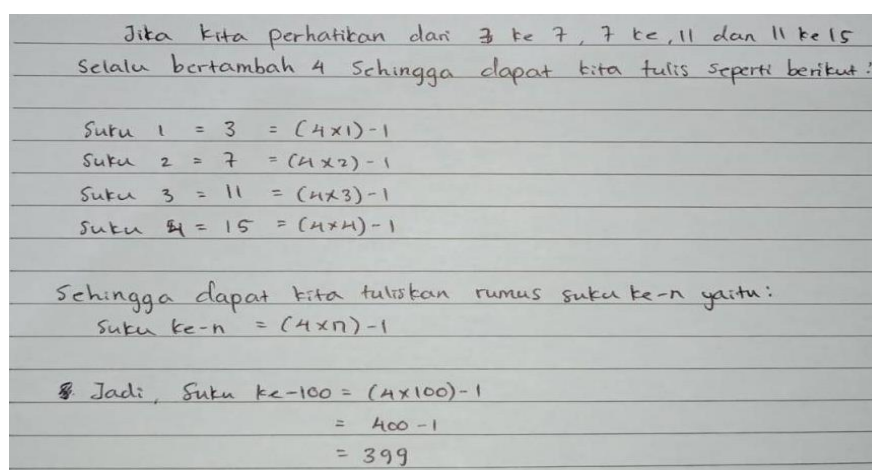 Jika kita perhatikan dari 3 ke 7, 7 ke, 11 dan 11 ke 15
Selalu bertambah 4 Sehingga dapat kita tulis seperti berikut:
Suku 1 = 3 = (4x1)-1
Suku 2 = 7 = (4x2)-1
Suku 3 = 11 = (4x3)-1
Suku 4 = 15 = (4x4)-1
Sehingga dapat kita tuliskan rumus suku ke-n yaitu:
Suku ke-n = (4xn)-1
Jadi, Suku ke-100 = (4x100)-1
= 400-1
= 399